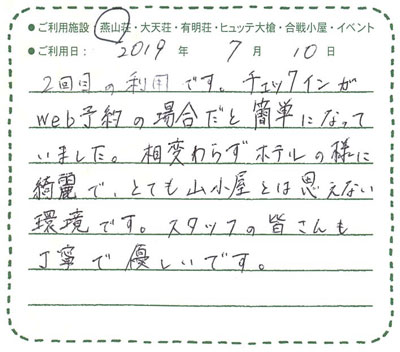 ●ご利用施設 燕山荘・大天荘・有明荘・ヒュッテ大槍・合戦小屋・イベント
●ご利用日: 2019 年 7 月 10 日
2回目の利用です。チェックインが
web予約の場合だと簡単になって
いました。相変わらずホテルの様に
綺麗で、とても山小屋とは思えない
環境です。スタッフの皆さんも
丁寧で優しいです。